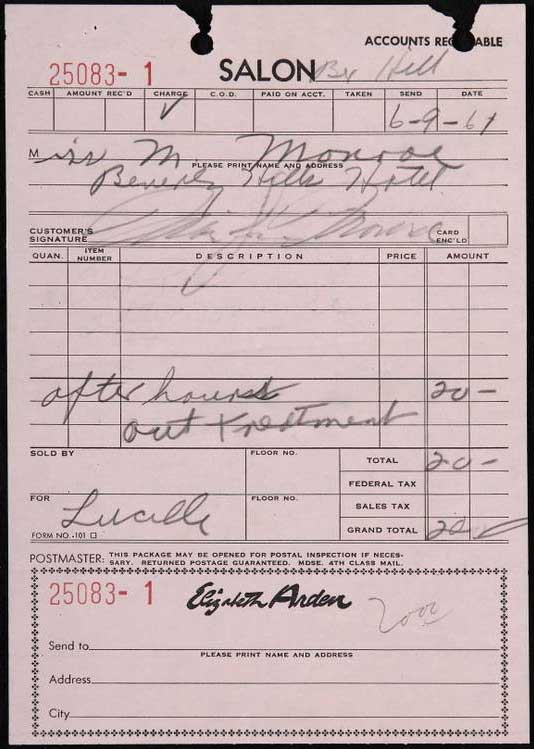 ACCOUNTS RECEIVABLE
25083- 1 SALON Bev Hill
CASH AMOUNT REC'D CHARGE C.O.D. PAID ON ACCT. TAKEN SEND DATE
✓ 6-9-61
Miss M Monroe
PLEASE PRINT NAME AND ADDRESS
Beverly Hills Hotel
CUSTOMER'S SIGNATURE CARD ENC'LD
QUAN. ITEM NUMBER DESCRIPTION PRICE AMOUNT
after hours 20-
out treatment
SOLD BY FLOOR NO. TOTAL 20-
FEDERAL TAX
FOR Lucille FLOOR NO. SALES TAX
GRAND TOTAL 20
FORM NO.-101 □
POSTMASTER: THIS PACKAGE MAY BE OPENED FOR POSTAL INSPECTION IF NECES-
SARY. RETURNED POSTAGE GUARANTEED. MDSE. 4TH CLASS MAIL.
25083- 1 Elizabeth Arden
Send to
PLEASE PRINT NAME AND ADDRESS
Address
City